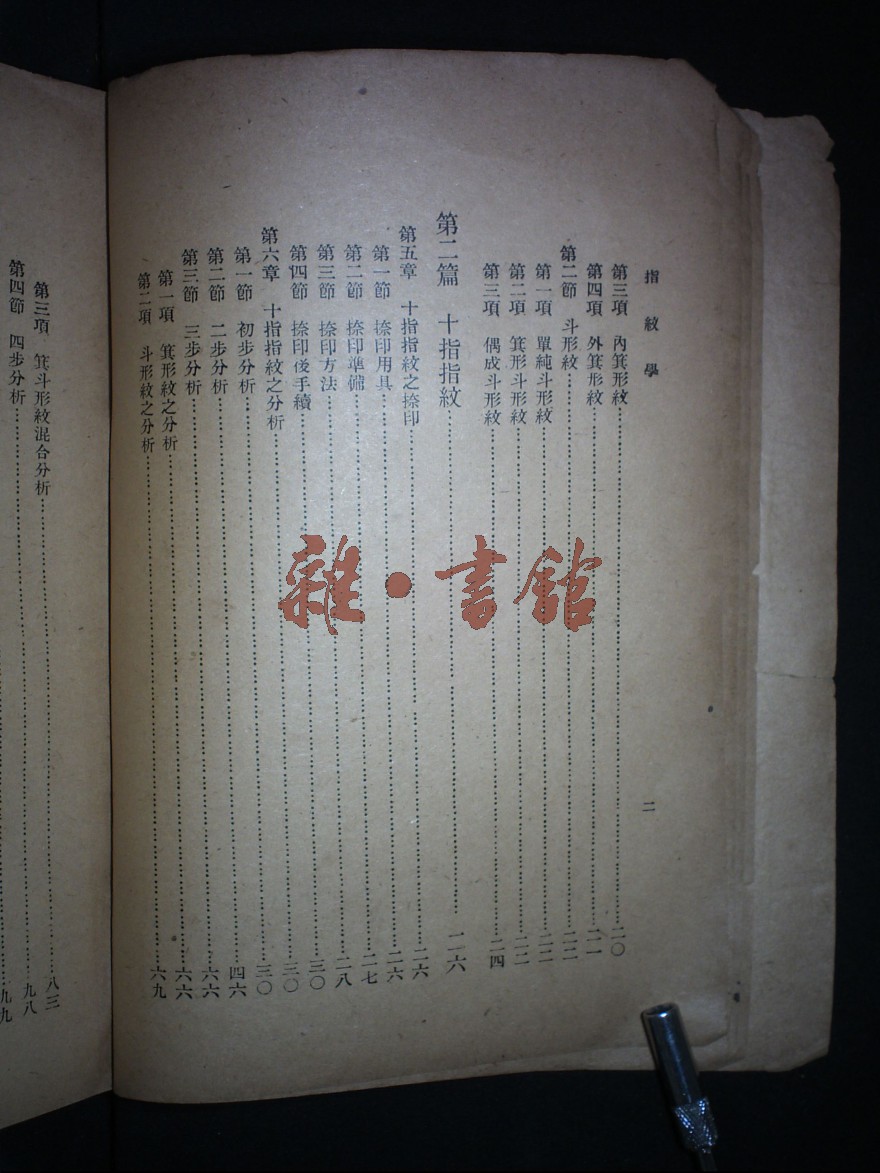 指紋學
二
第三項 內箕形紋……二〇
第四項 外箕形紋……二一
第二節 斗形紋……二二
第一項 單純斗形紋……二二
第二項 箕形斗形紋……二二
第三項 偶成斗形紋……二四
第二篇 十指指紋……二六
第五章 十指指紋之捺印……二六
第一節 捺印用具……二六
第二節 捺印準備……二七
第三節 捺印方法……二八
第四節 捺印後手續……三〇
第六章 十指指紋之分析……三〇
第一節 初步分析……三〇
第二節 二步分析……四六
第三節 三步分析……六六
第一項 箕形紋之分析……六六
第二項 斗形紋之分析……六九
第三項 箕斗形紋混合分析……八三
第四節 四步分析……九八
九九
雜·書館